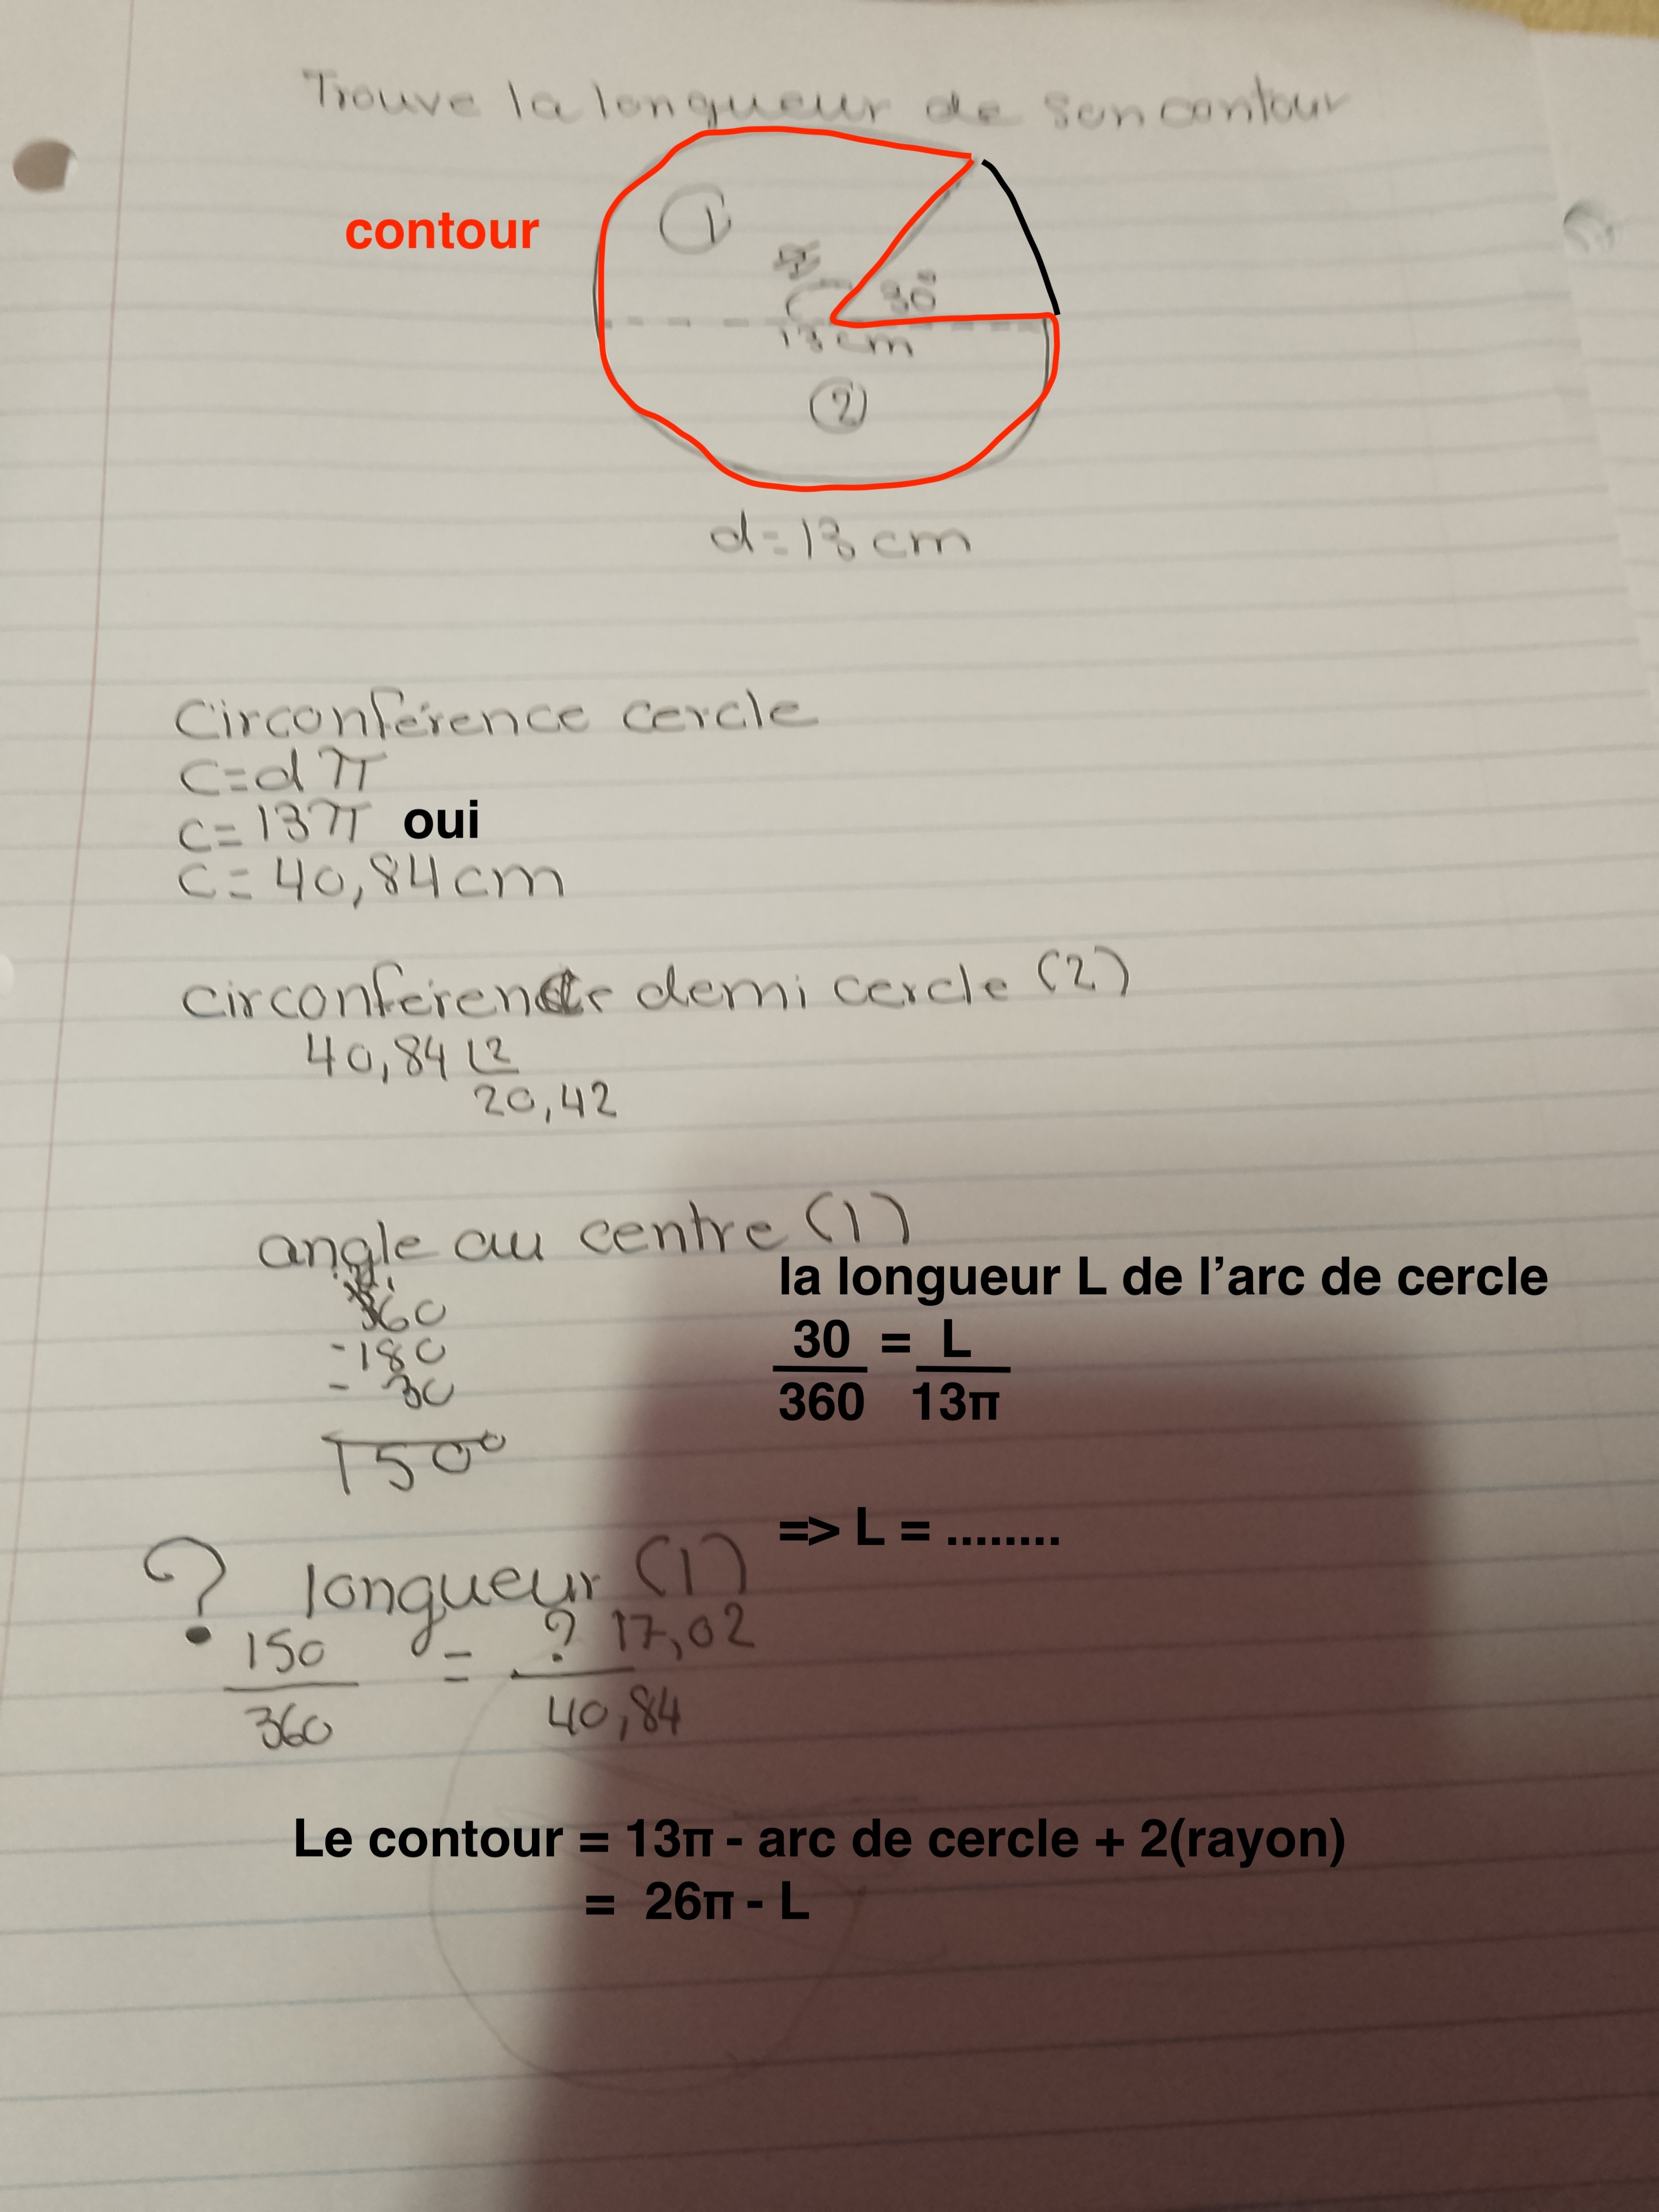 Trouve la longueur de son contour
contour
1
30°
13 cm
2
d=13 cm
Circonférence cercle
C=dπ
C=13π oui
C=40,84cm
circonférence demi cercle (2)
40,84 2
20,42
angle au centre (1)
360
-180
- 30
150°
la longueur L de l’arc de cercle
30 = L
360 13π
=> L = ........
? longueur (1)
150 = ? 17,02
360 40,84
Le contour = 13π - arc de cercle + 2(rayon)
= 26π - L